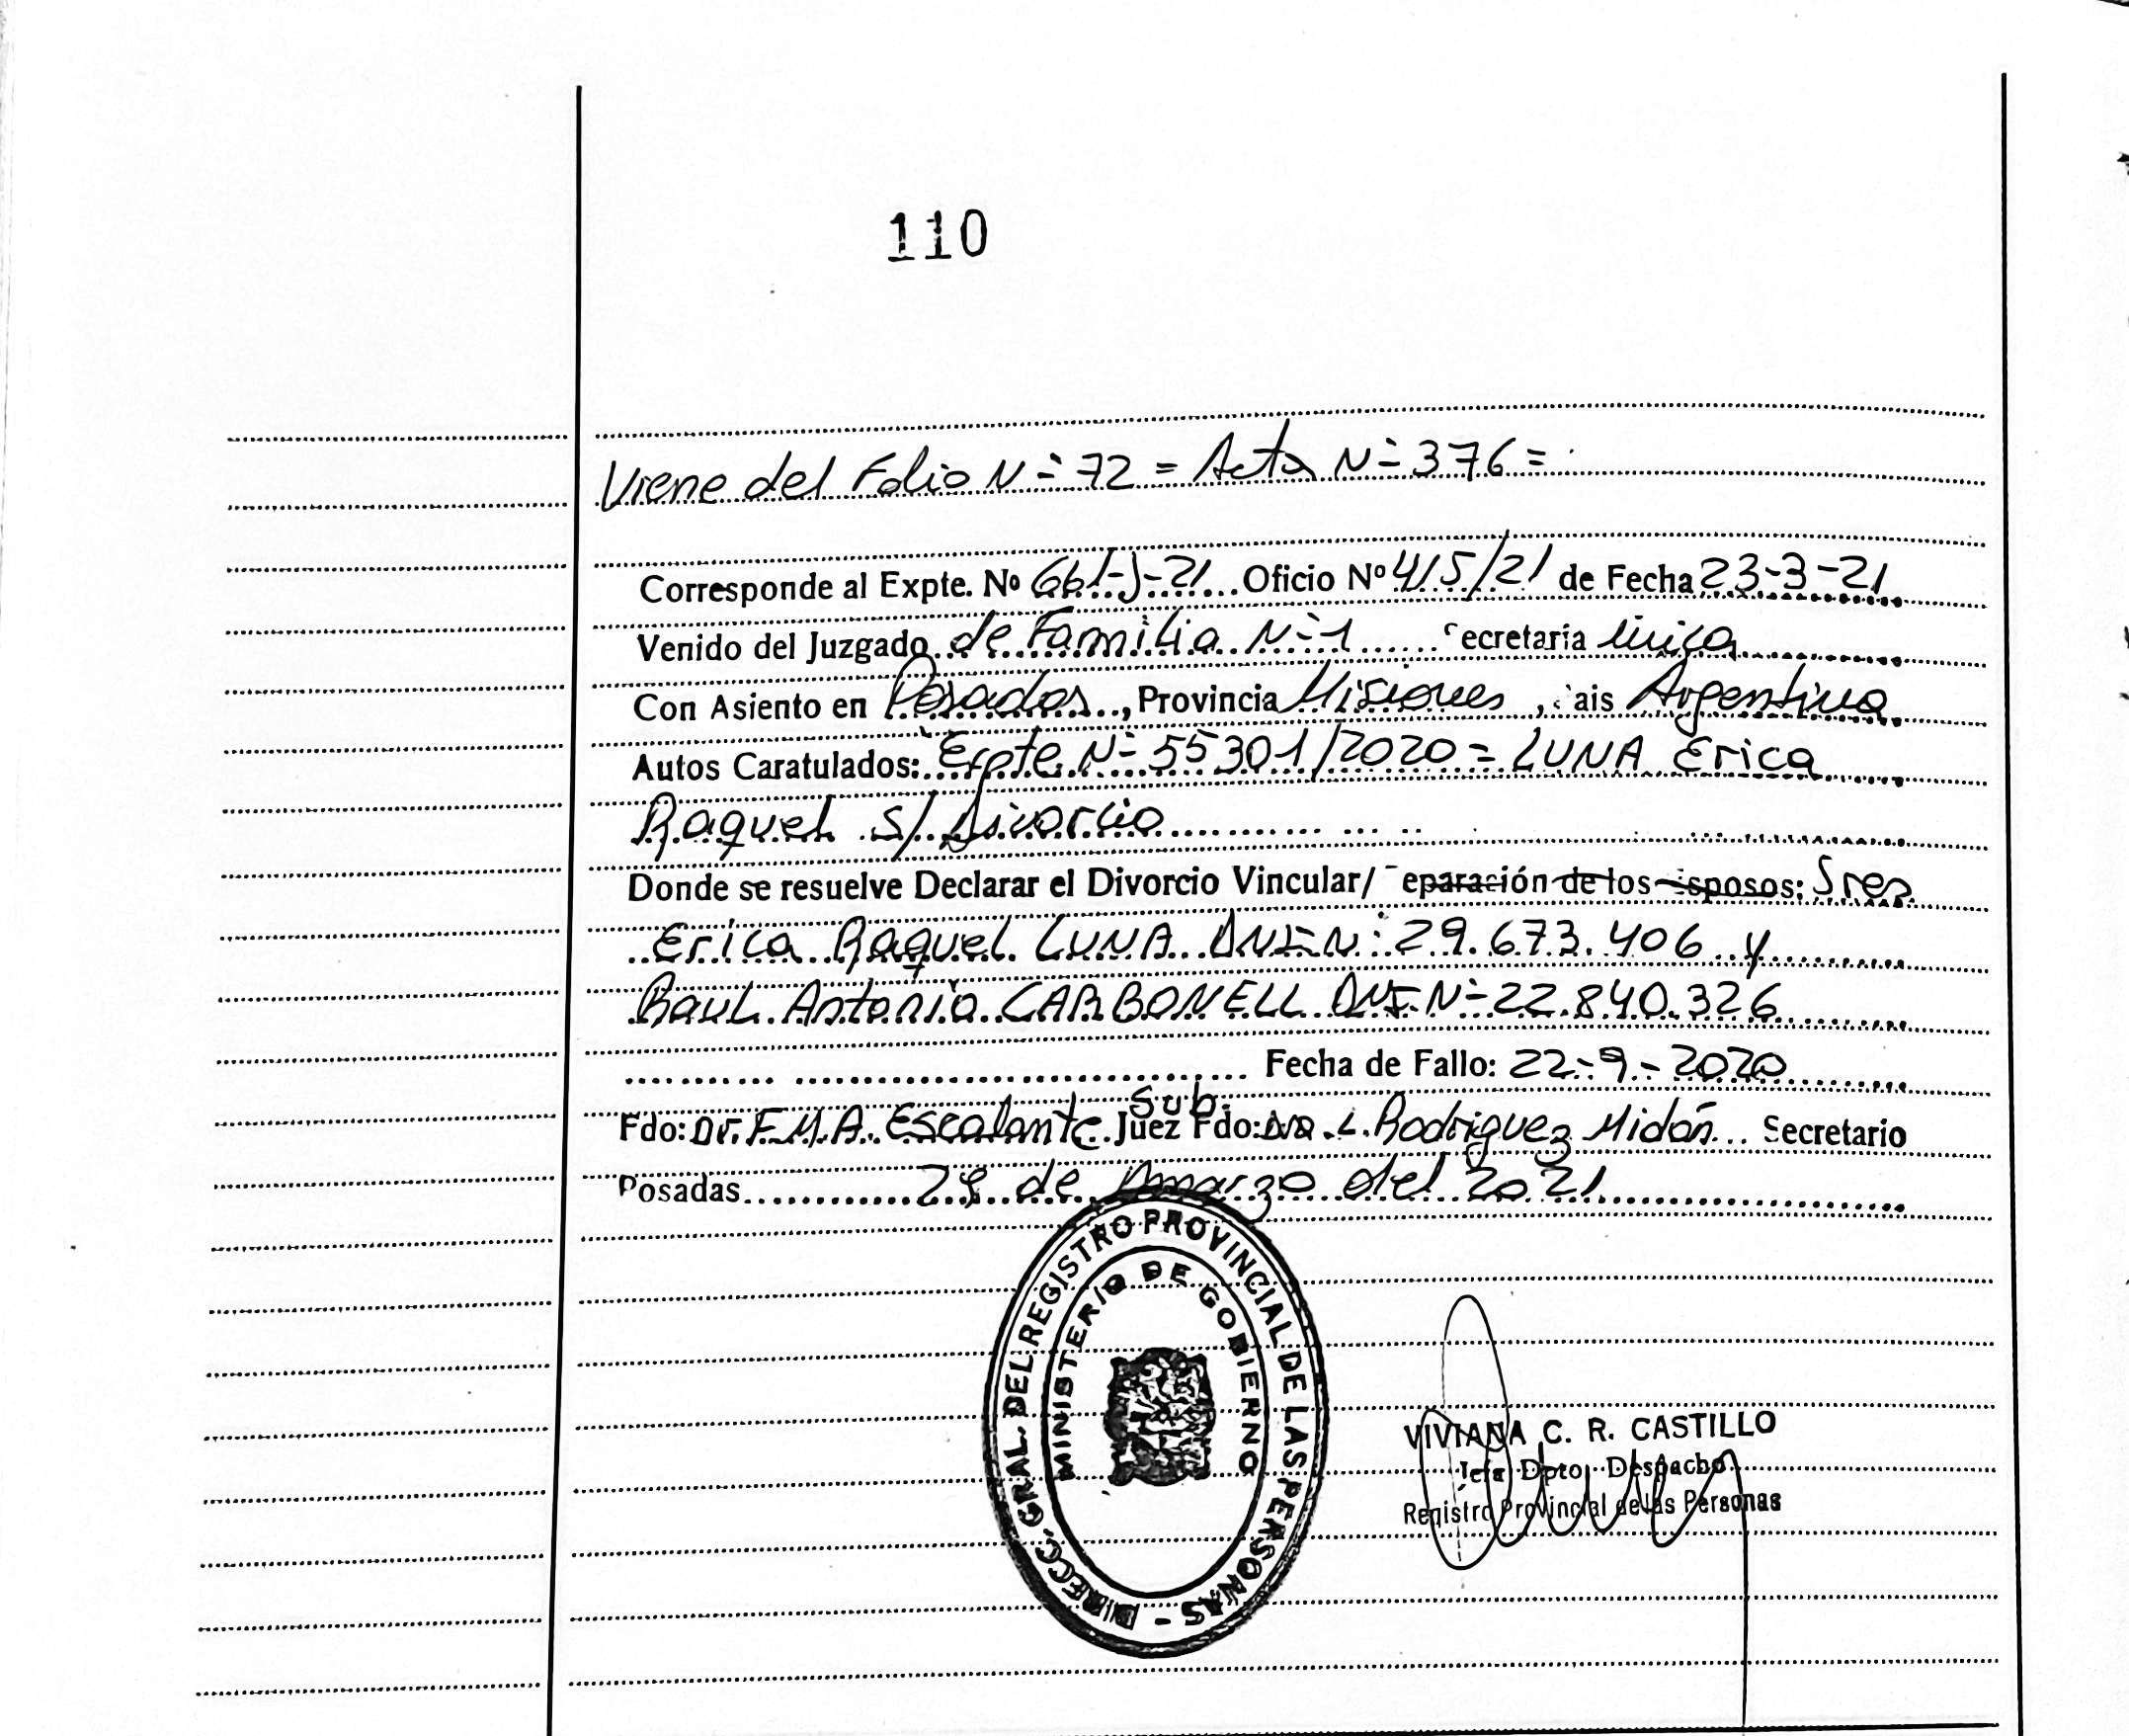 110
Viene del Folio N= 72 = Acta N= 376 =
Corresponde al Expte. Nº 661-J-21 Oficio Nº 415/21 de Fecha 23-3-21
Venido del Juzgado de Familia N=1 ecretaría única
Con Asiento en Posadas, Provincia Misiones, ais Argentina
Autos Caratulados: Expte N= 55301/2020 = LUNA Erica
Raquel s/ Divorcio
Donde se resuelve Declarar el Divorcio Vincular/ eparación de los esposos: Sres
Erica Raquel LUNA DNI N: 29.673.406 y
Raul Antonio CARBONELL DNI N= 22.840.326
Fecha de Fallo: 22-9-2020
Sub.
Fdo: Dr. F.M.A. Escalante Juez Fdo: Dra. L. Rodriguez Midón Secretario
Posadas de marzo del 2021
DIRECC. GRAL. DEL REGISTRO PROVINCIAL DE LAS PERSONAS -
MINISTERIO DE GOBIERNO
VIVIANA C. R. CASTILLO
Jefa Dpto. Despacho
Registro Provincial de las Personas